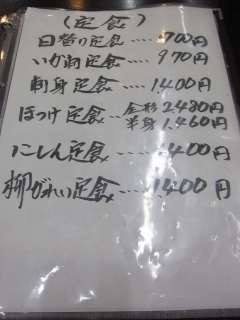 (定食)
日替り定食‥‥700円
いか刺定食‥‥970円
刺身定食‥‥1400円
ほっけ定食‥‥全移2480円
半身1,460円
にしん定食‥‥1400円
柳がれい定食‥‥1400円